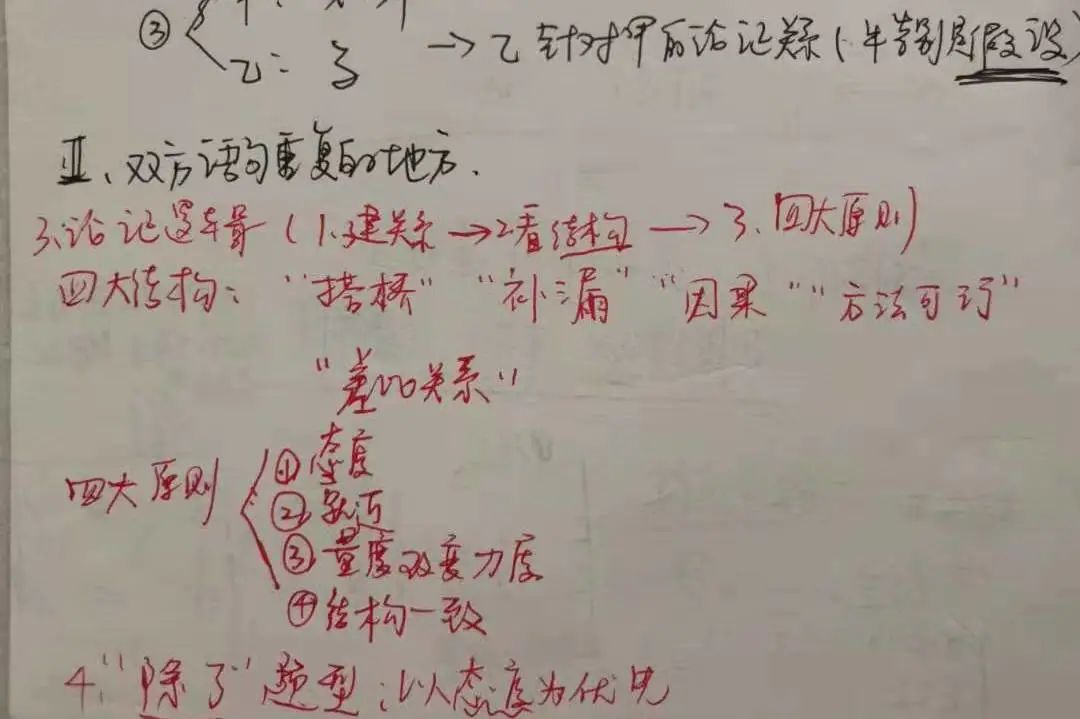 ③
乙: → 乙针对甲的论证关系(特别是假设)
Ⅲ、双方语句重复的地方.
3.论证逻辑 (1.建关系→2看结构→3.四大原则)
四大结构: "搭桥" "补漏" "因果" "方法可巧"
"差比关系"
四大原则 ①态度
②就近
③量度改变力度
④结构一致
4."除了"题型:以态度为优先